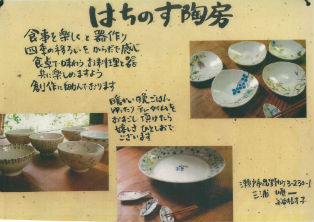 はちのす陶房
食事を楽しくと器作り
四季の移ろいをからだで感じ
食卓で味わうお料理と器
共に楽しめますよう
創作に励んでおります
暖かい晩ごはん
ゆったりティータイムを
おすごし頂けたら
嬉しさひとしおで
ございます
瀬戸市 町3-230-1
三浦